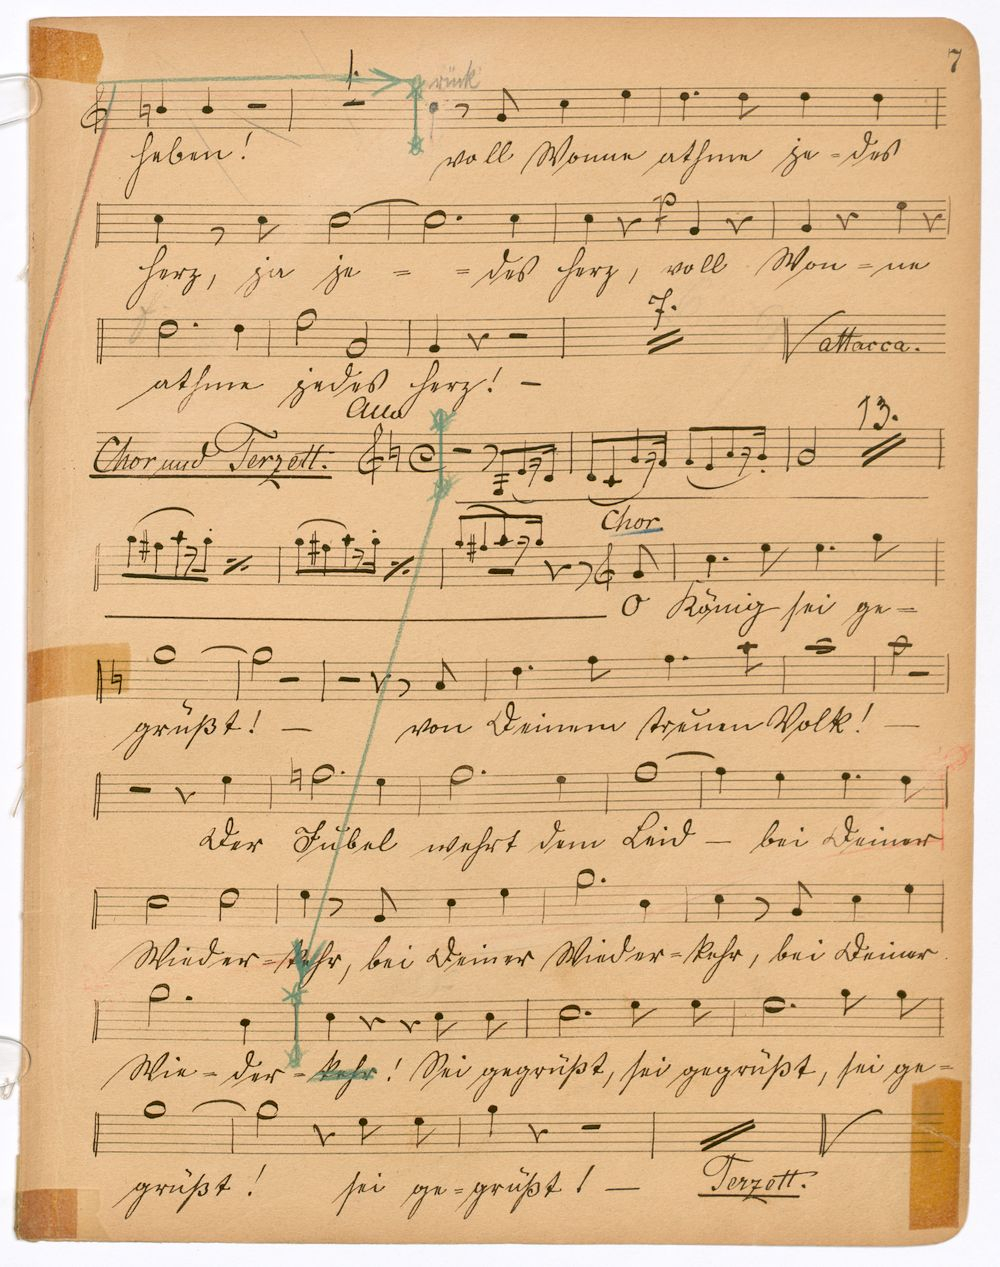 7
1.
rück
heben! voll Wonne athme je = des
herz, ja je = = des herz, voll Won = ne
7.
attacca.
athme jedes herz! —
Allo
13.
Chor und Terzett.
Chor
O König sei ge =
grüßt! — von Deinem treuen Volk! —
Der Jubel wehrt dem Leid — bei Deiner
Wieder = kehr, bei Deiner Wieder = kehr, bei Deiner
Wie = der = kehr! Sei gegrüßt, sei gegrüßt, sei ge =
grüßt! sei ge = grüßt! — Terzett.